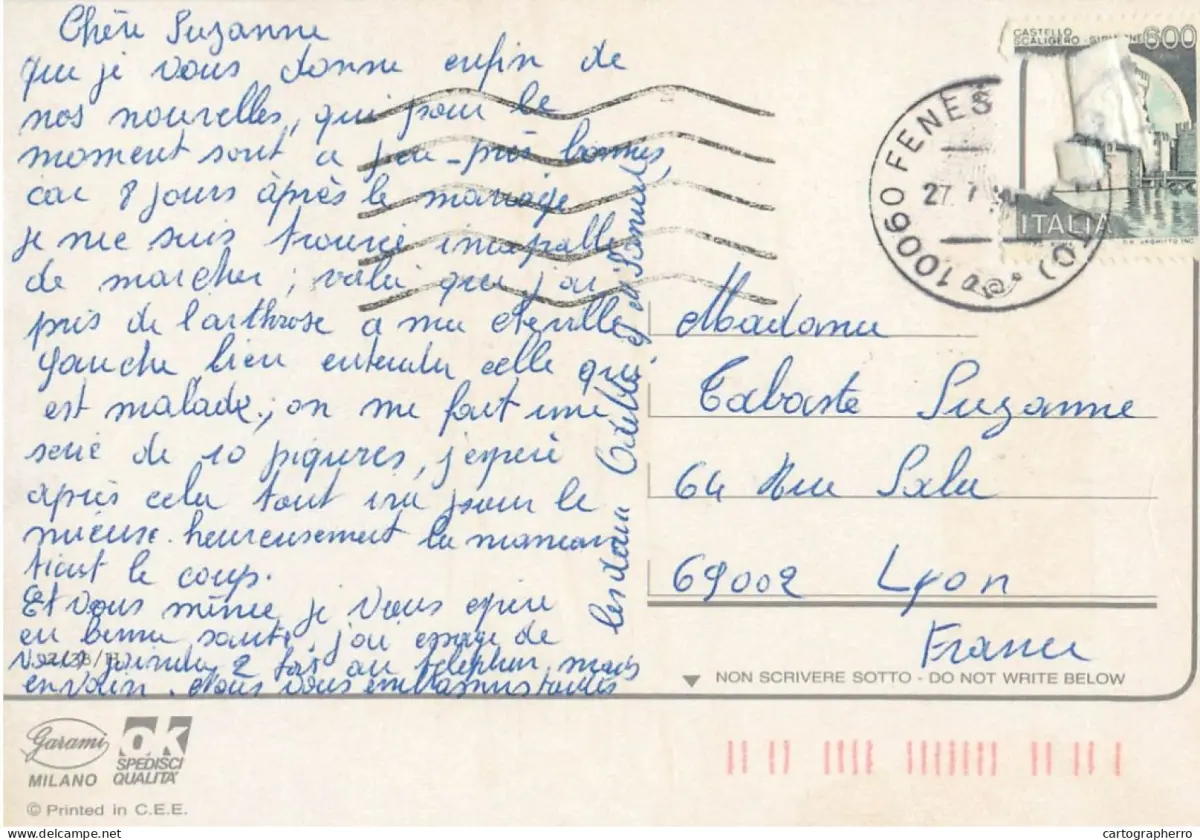 Chère Suzanne
que je vous donne enfin de
nos nouvelles, qui pour le
moment sont a peu-près bonnes,
car 8 jours après le mariage
je me suis trouvée incapable
de marcher; voila que j'ai
pris de l'arthrose a ma cheville
gauche bien entendu celle qui
est malade; on me fait une
serie de 10 piqures, j'espère
après cela tout ira pour le
mieuse. heureusement la maman
tient le coup.
Et vous même je vous espère
en bonne santé, j'ai essayé de
vous joindre 2 fois au téléphone mais
en vain. Nous vous embrassons toutes
les deux Odette et
Madame
Tabaste Suzanne
64 Rue Sala
69002 Lyon
France
CASTELLO
SCALIGERO - SIRMIONE 600
ITALIA
10060 FENES (TO)
27. 7
NON SCRIVERE SOTTO - DO NOT WRITE BELOW
Garami
MILANO
OK
SPEDISCI
QUALITA'
© Printed in C.E.E.
cartographerro